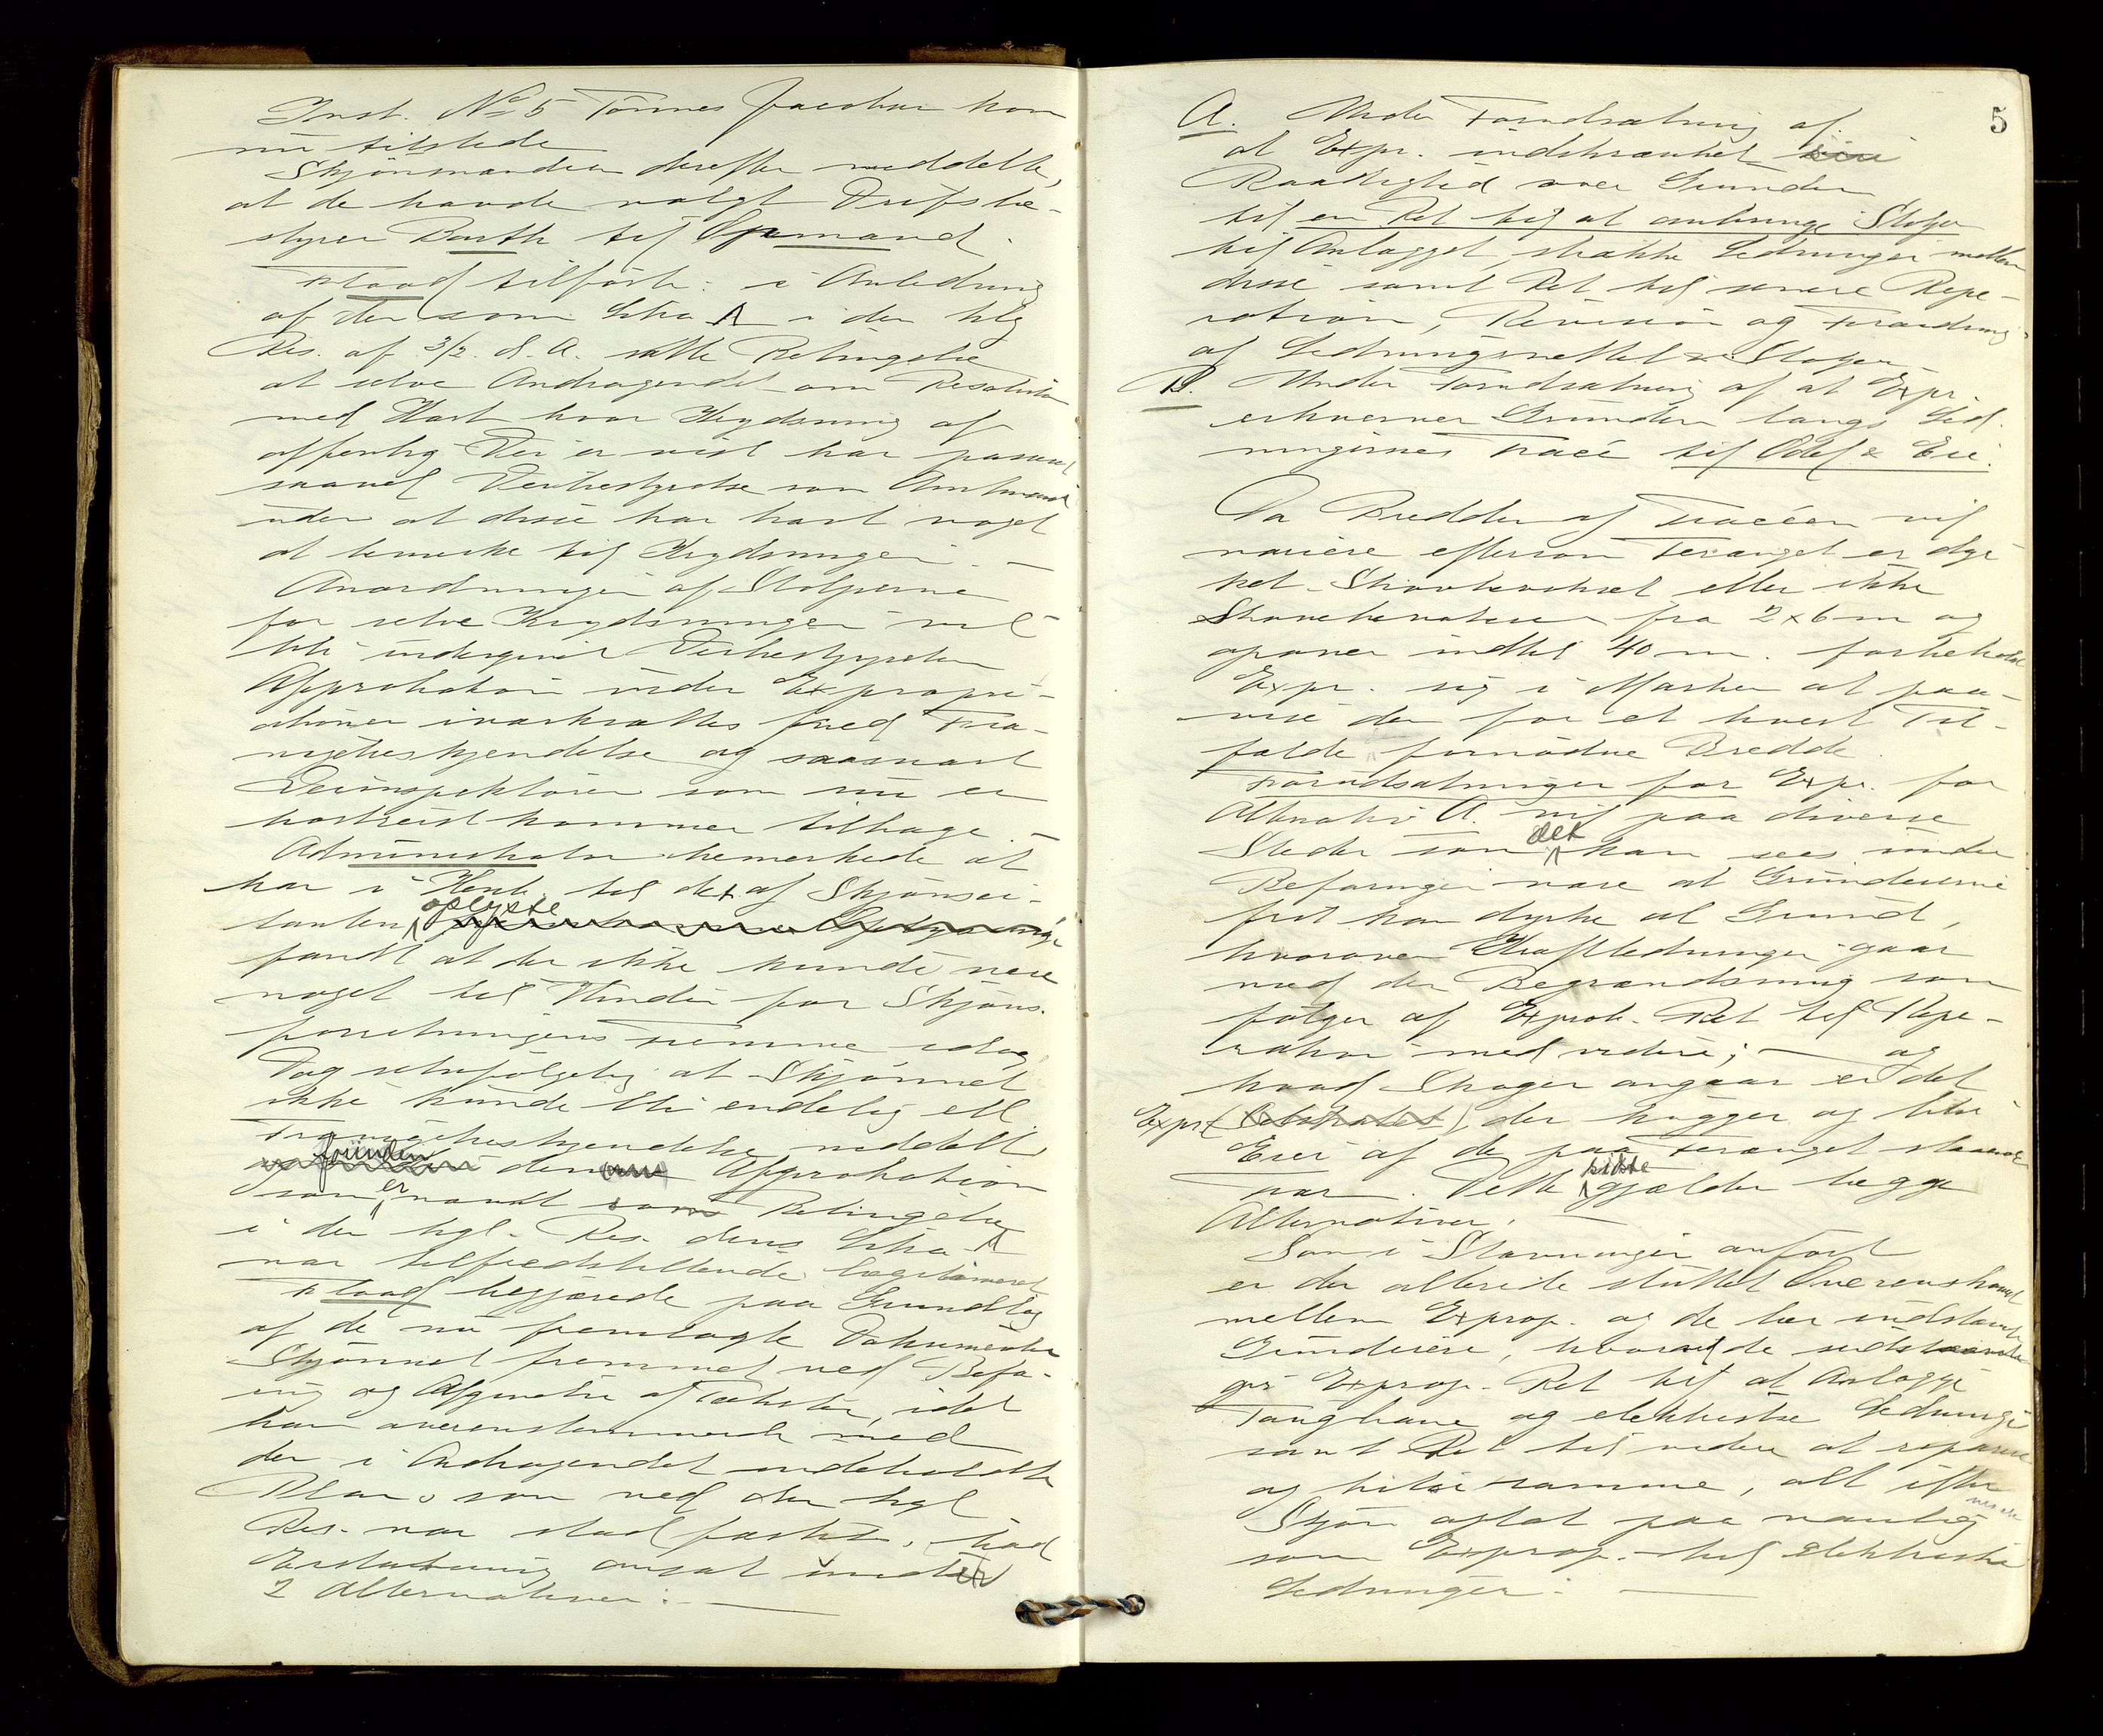 Inst. No 5 Tönnes Jacobsen kom
nu tilstede
Skjönsmændene derefter meddelte,
at de havde valgt Driftsbe-
styrer Barth til Opmand.
Flood tilförte: i Anledning
af den som Litra A i den klg
Res. af 3/2. d. A. satte Betingelse
at selve Andragendet om Resolution
med Kart hvor Krydsning af
offentlig Vei er vist har passeret
saavel Veibestyrelse som Amtmand
uden at disse har havt noget
at bemerke til Krydsningen. —
Anordningen af Stolperne
for selve Krydsningen vil
bli undergivet Veibestyrelsens
Approbation inden Expropri-
ationen iverksættes ved Fra-
vigelseskjendelse og saasnart
Veiinspektören som nu er
bortreist kommer tilbage. —
Administrator bemerkede at
han i Henh. til det af Skjönsci-
tanten oplyste
fandt at der ikke kunde være
noget til Hinder for Skjöns-
forretningens Fremme idag.
Dog selvfölgelig at Skjönnet
ikke kunde bli endelig ell
Fravigelseskjendelse meddelt,
förinden den Approbation
som er nævnt som Betingelse
i den kgl. Res. dens Litra A
var tilfredsstillende legitimeret
Flood begjærede paa Grundlag
af de nu fremlagte Dokumenter
Skjönnet fremmet ved Befa-
ring og Afgivelse af Takster, idet
han overensstemmende med
den i Andragendet indeholdte
Plan, som ved den kgl
Res. var stadfæstet, bad
Erstatning ansat under
2 Alternativer: —
5
A. Under Forudsætning af
at Expr. indskrænket sin
Raadighed over Grunden
til en Ret til at anbringe Stolper
til Anlægget, strække Ledninger mellem
disse samt Ret til senere Repe-
ration, Revision og Forandring
af Ledningsnettet & Stolper
B. Under Forudsætning af at Expr.
erhverver Grunden langs Led-
ningernes Tracé til Odel & Eie.
Da Bredden af Traceen vil
variere eftersom Terrænget er dyr-
ket, Skovbevokset eller ikke
Skovbevokset fra 2 x 6 m og
opover indtil 40 m. forbeholdt
Expr. sig i Marken at paa-
vise den for et hvert Til-
fælde fornödne Bredde.
Forudsætninger for Expr. for
Alternativ A. vil paa diverse
Steder som det kan sees under
Befaringen være at Grundeierne
frit kan dyrke al Grund,
hvorover Kraftledningen gaar
med den Begrændsning som
fölger af Exprop. Ret til Repe-
ration med videre; — og
hvad Skogen angaar er det
Expr. der hugger og blir
Eier af de paa Terrænget staaende
Trær. Dette sidste gjælder begge
Alternativer. —
Som i Stevningen anfört
er der allerede sluttet Overenskomst
mellem Exprop. og de her indstevnte
Grundeiere, hvorved de sidstnævnte
gir Exprop. Ret til at Anlægge
Taugbane og elektriske Ledninger
samt Ret til videre at reparere
og tilse samme, alt efter
Skjön optat paa vanlig
som Exprop. til elektriske
Ledninger. —